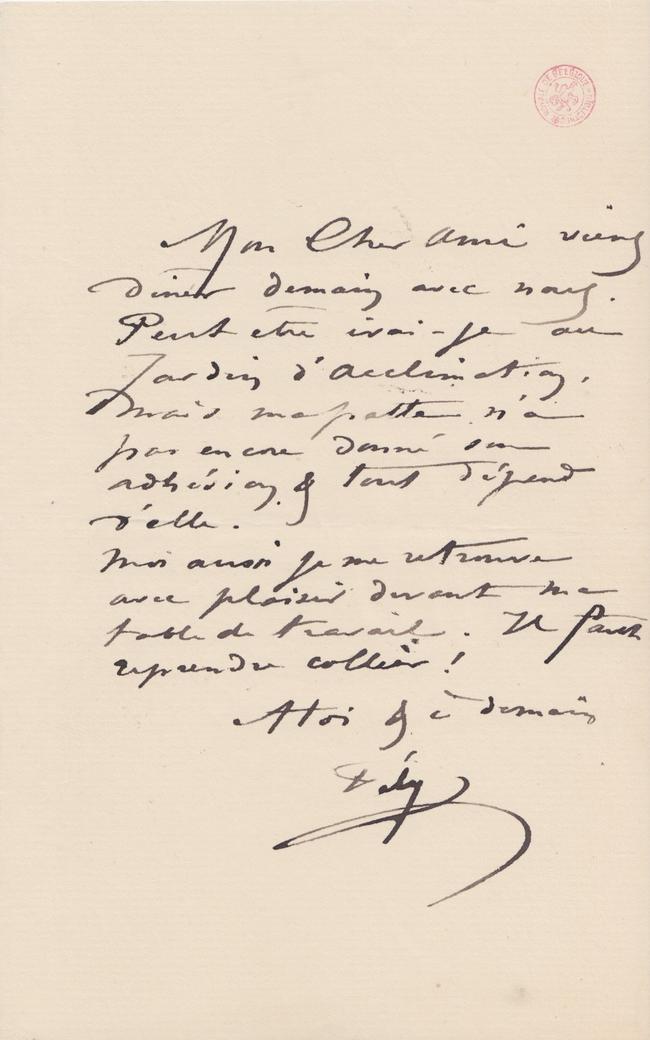 BIBLIOTHÈQUE ROYALE DE BELGIQUE
Mon Cher Ami viens
diner demain avec nous.
Peut etre irai-je au
Jardin d'Acclimatation,
Mais ma patte n'a
pas encore donné son
adhésion & tout dépend
d'elle.
Moi aussi je me retrouve
avec plaisir devant ma
table de travail. Il faut
reprendre collier !
A toi & à demain
Fély